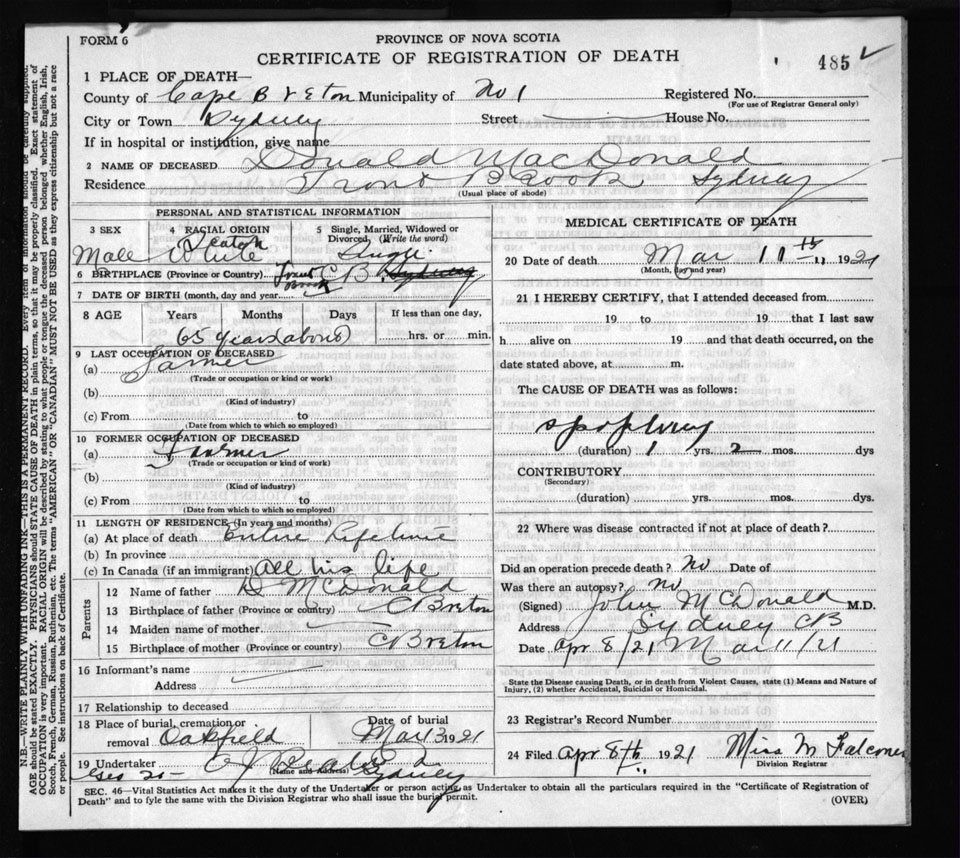 FORM 6
PROVINCE OF NOVA SCOTIA
CERTIFICATE OF REGISTRATION OF DEATH
485
1 PLACE OF DEATH—
County of Cape Breton Municipality of No 1 Registered No.
(For use of Registrar General only)
City or Town Sydney Street House No.
If in hospital or institution, give name
2 NAME OF DECEASED Donald MacDonald
Residence Front Brook Sydney
(Usual place of abode)
PERSONAL AND STATISTICAL INFORMATION
3 SEX
4 RACIAL ORIGIN
5 Single, Married, Widowed or Divorced, (Write the word)
Male White Single
6 BIRTHPLACE (Province or Country) Front Brook CB Sydney
7 DATE OF BIRTH (month, day and year
8 AGE Years Months Days If less than one day,
65 years about hrs. or min.
9 LAST OCCUPATION OF DECEASED
(a) Farmer
(Trade or occupation or kind or work)
(b)
(Kind of industry)
(c) From to
(Date from which to which so employed)
10 FORMER OCCUPATION OF DECEASED
(a) Farmer
(Trade or occupation or kind or work)
(b)
(Kind of industry)
(c) From to
(Date from which to which so employed)
11 LENGTH OF RESIDENCE (In years and months)
(a) At place of death Entire Lifetime
(b) In province
(c) In Canada (if an immigrant) All his life
Parents
12 Name of father D McDonald
13 Birthplace of father (Province or country) C Breton
14 Maiden name of mother
15 Birthplace of mother (Province or country) C Breton
16 Informant's name
Address
17 Relationship to deceased
18 Place of burial, cremation or removal Oakfield
Date of burial Mar 13 1921
19 Undertaker
(Name and Address) Sydney
MEDICAL CERTIFICATE OF DEATH
20 Date of death Mar 11th 1921
(Month, day and year)
21 I HEREBY CERTIFY, that I attended deceased from
19 to 19 that I last saw
h alive on 19 and that death occurred, on the
date stated above, at m.
The CAUSE OF DEATH was as follows:
apoplexy
(duration) 1 yrs. 2 mos. dys
CONTRIBUTORY
(Secondary)
(duration) yrs. mos. dys.
22 Where was disease contracted if not at place of death?
Did an operation precede death? No Date of
Was there an autopsy? No
(Signed) John McDonald M.D.
Address Sydney CB
Date Apr 8/21 Mar 11/21
State the Disease causing Death, or in death from Violent Causes, state (1) Means and Nature of
Injury, (2) whether Accidental, Suicidal or Homicidal.
23 Registrar's Record Number
24 Filed Apr 8th 1921 Miss M Falconer
Division Registrar
SEC. 46—Vital Statistics Act makes it the duty of the Undertaker or person acting as Undertaker to obtain all the particulars required in the "Certificate of Registration of
Death" and to fyle the same with the Division Registrar who shall issue the burial permit.
(OVER)
N.B.—WRITE PLAINLY WITH UNFADING INK—THIS IS A PERMANENT RECORD. Every item of information should be carefully supplied.
AGE should be stated EXACTLY. PHYSICIANS should STATE CAUSE OF DEATH in plain terms, so that it may be properly classified. Exact statement of
OCCUPATION is very important. RACIAL ORIGIN will be described by stating to what people or tongue the deceased person belonged whether English, Irish,
Scotch, French, German, Russian, Ruthenian, etc. The terms "AMERICAN" OR "CANADIAN" MUST NOT BE USED as they express citizenship but not a race
or people. See instructions on back of Certificate.